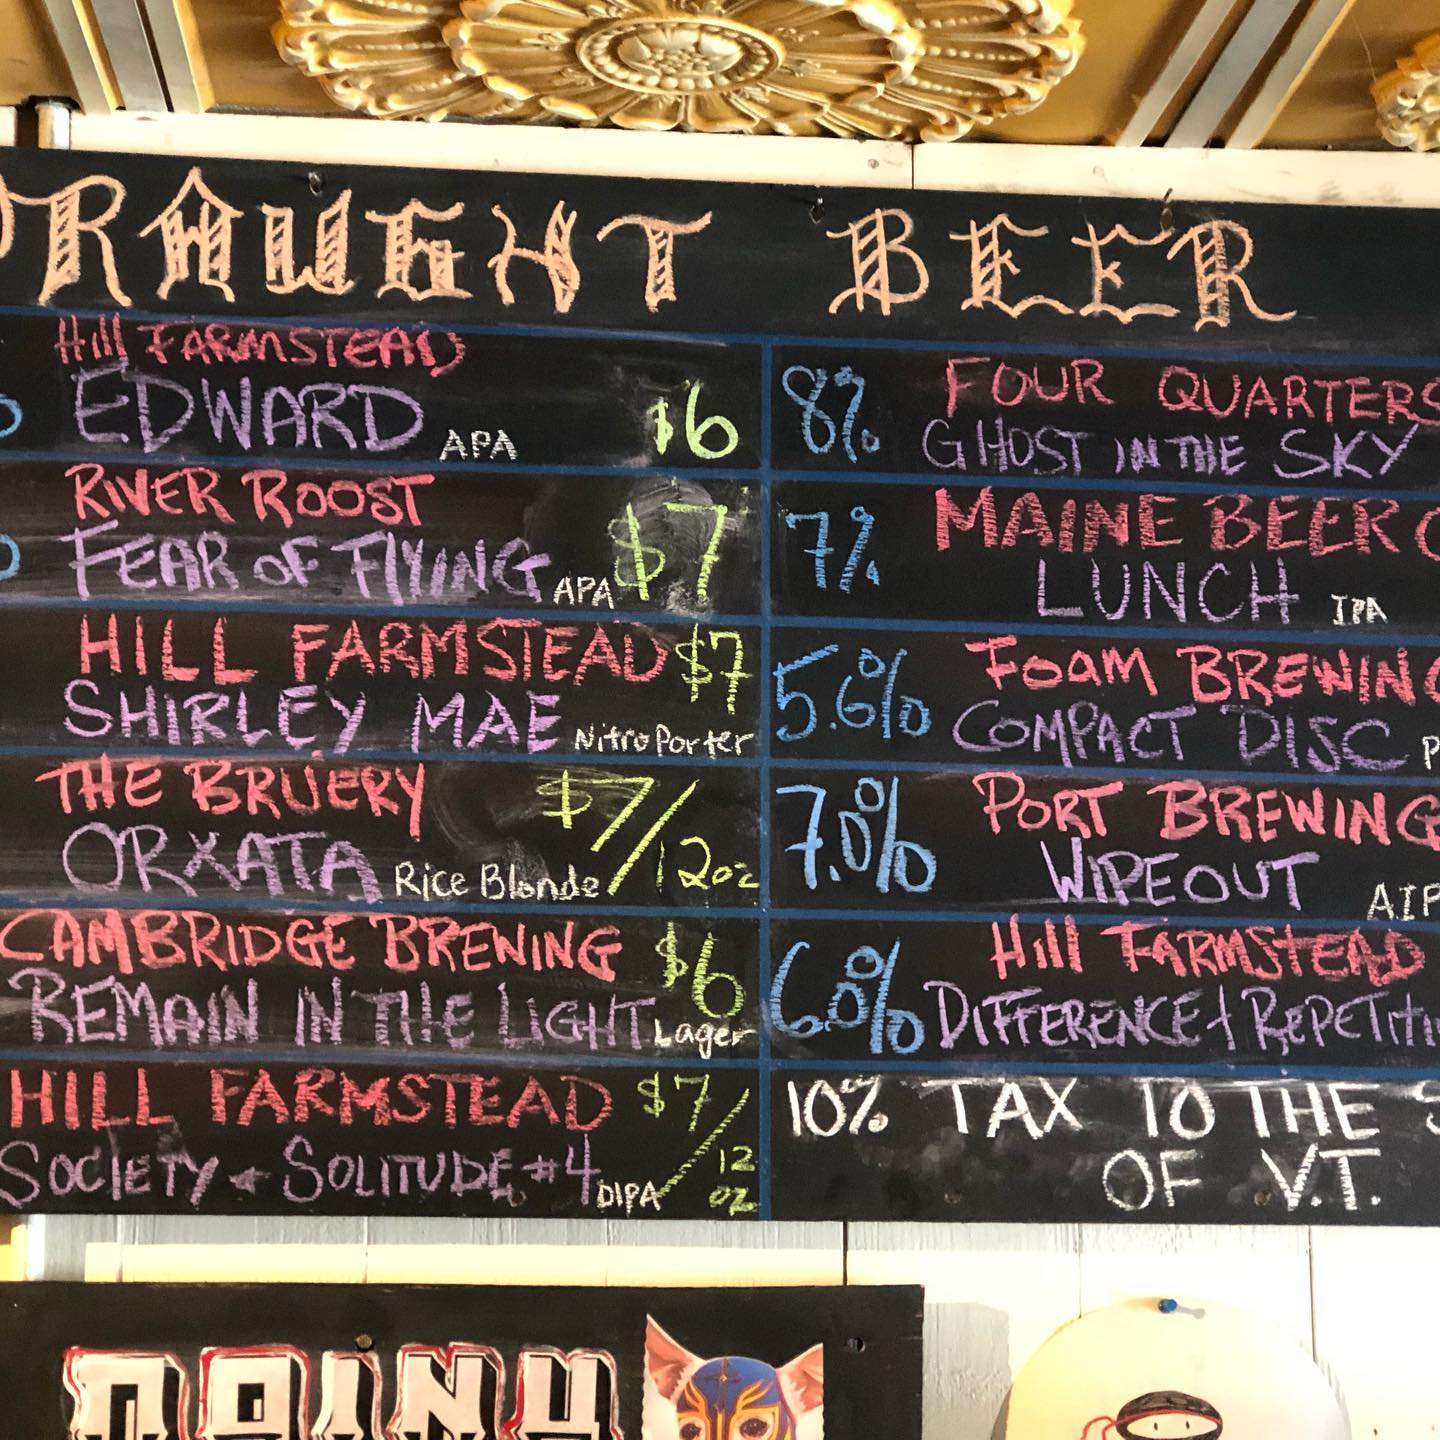 DRAUGHT BEER
Hill FARMSTEAD
EDWARD APA $6
RIVER ROOST
FEAR OF FLYING APA $7
HILL FARMSTEAD $7
SHIRLEY MAE Nitro Porter
THE BRUERY $7/12oz
ORXATA Rice Blonde
CAMBRIDGE BREWING $6
REMAIN IN THE LIGHT Lager
HILL FARMSTEAD $7/12 oz
SOCIETY + SOLITUDE #4 DIPA
8% FOUR QUARTERS
GHOST IN THE SKY
7% MAINE BEER C
LUNCH IPA
5.6% FOAM BREWING
COMPACT DISC P
7.0% PORT BREWING
WIPEOUT AIP
6.0% Hill FARMSTEAD
DIFFERENCE + REPETITI
10% TAX TO THE S
OF V.T.